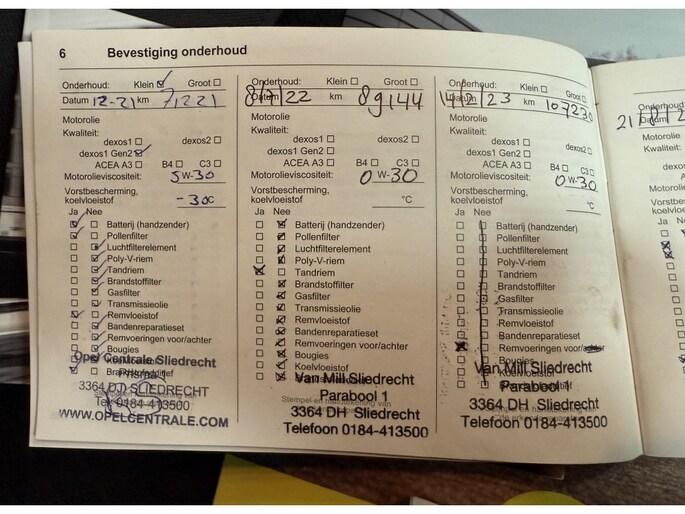 6 Bevestiging onderhoud
Onderhoud: Klein Groot
Datum 12-21 km 71221
Motorolie
Kwaliteit:
dexos1 dexos2
dexos1 Gen2
ACEA A3 B4 C3
Motorolieviscositeit: 5 W-30
Vorstbescherming,
koelvloeistof -30C
Ja Nee
Batterij (handzender)
Pollenfilter
Luchtfilterelement
Poly-V-riem
Tandriem
Brandstoffilter
Gasfilter
Transmissieolie
Remvloeistof
Bandenreparatieset
Remvoeringen voor/achter
Bougies
Opel Centrale Sliedrecht
3364 DJ SLIEDRECHT
Tel 0184-413500
WWW.OPELCENTRALE.COM
Onderhoud: Klein Groot
Datum 8/7/22 km 89144
Motorolie
Kwaliteit:
dexos1 dexos2
dexos1 Gen2
ACEA A3 B4 C3
Motorolieviscositeit: 0 W-30
Vorstbescherming,
koelvloeistof °C
Ja Nee
Batterij (handzender)
Pollenfilter
Luchtfilterelement
Poly-V-riem
Tandriem
Brandstoffilter
Gasfilter
Transmissieolie
Remvloeistof
Bandenreparatieset
Remvoeringen voor/achter
Bougies
Koelvloeistof
Van Mill Sliedrecht
Parabool 1
3364 DH Sliedrecht
Telefoon 0184-413500
Onderhoud: Klein Groot
Datum 23 km 107230
Motorolie
Kwaliteit:
dexos1 dexos2
dexos1 Gen2
ACEA A3 B4 C3
Motorolieviscositeit: 0 W-30
Vorstbescherming,
koelvloeistof °C
Ja Nee
Batterij (handzender)
Pollenfilter
Luchtfilterelement
Poly-V-riem
Tandriem
Brandstoffilter
Gasfilter
Transmissieolie
Remvloeistof
Bandenreparatieset
Remvoeringen voor/achter
Bougies
Van Mill Sliedrecht
Parabool 1
3364 DH Sliedrecht
Telefoon 0184-413500
Onderhoud
Datum
Motorolie
Kwaliteit:
Ja